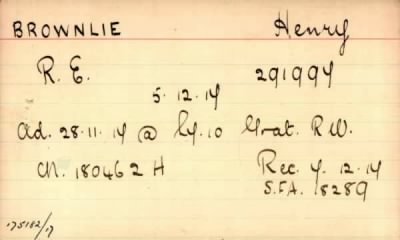 BROWNLIE Henry
R. E. 291997
5. 12. 17
Ad. 28. 11. 17 @ Cy. 10 Grat. R W.
CN. 180462 H Rec. 7. 12. 17
S.F.A. 18289
175182/17